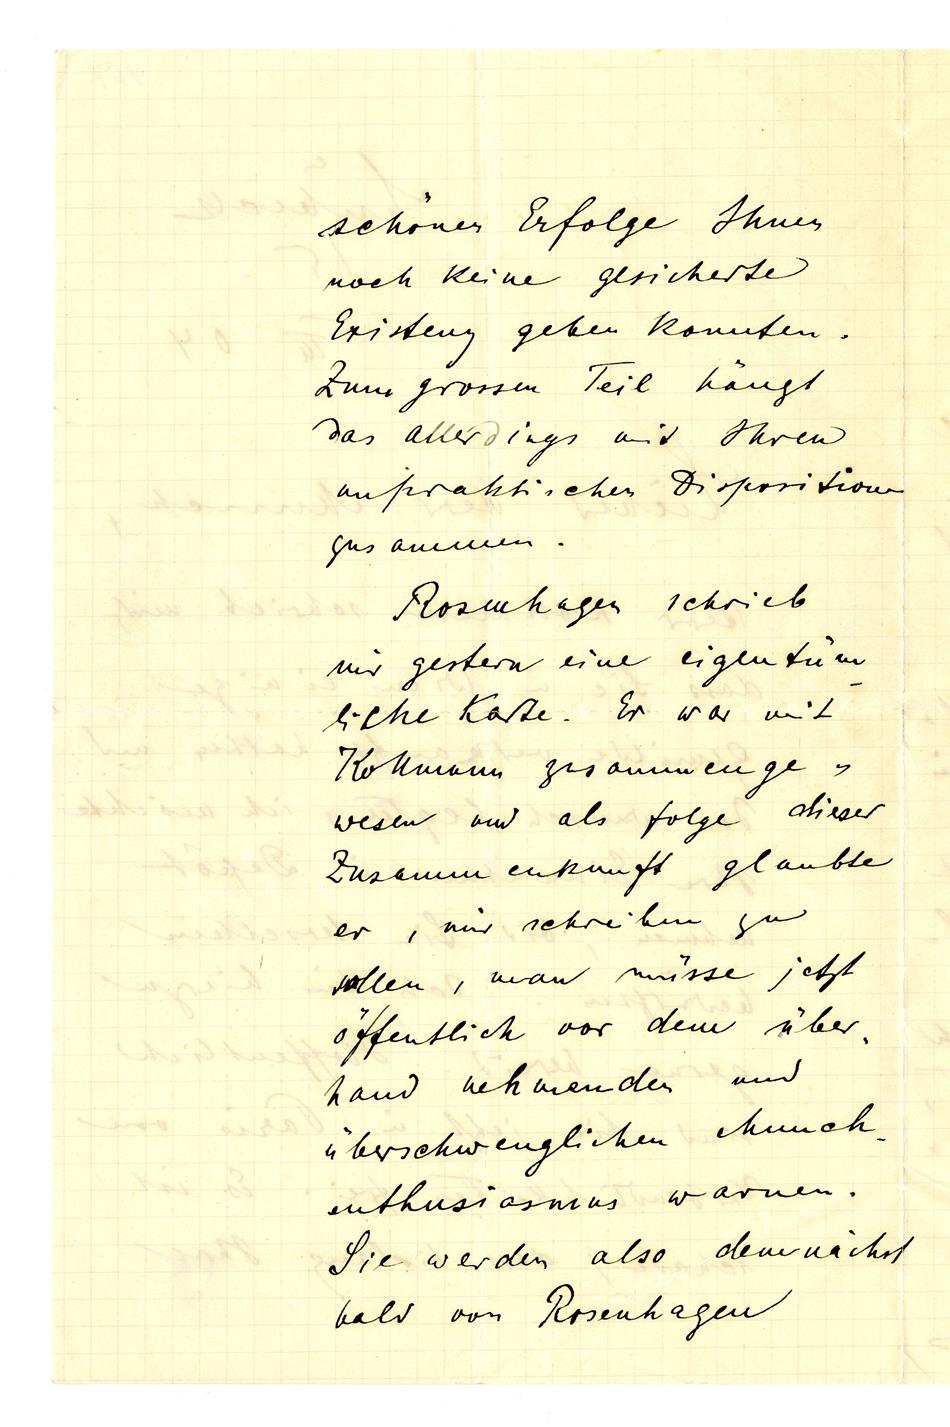 schönen Erfolge Ihnen
noch keine gesicherte
Existenz geben konnten.
Zum grossen Teil hängt
das allerdings mit Ihren
unpraktischen Dispositionen
zusammen.
Rosenhagen schrieb
mir gestern eine eigentüm-
liche Karte. Er war mit
Kollmann zusammenge-
wesen und als folge dieser
Zusammenkunft glaubte
er, mir schreiben zu
sollen, man müsse jetzt
öffentlich vor dem über-
hand nehmenden und
überschwenglichen Munch-
enthusiasmus warnen.
Sie werden also demnächst
bald von Rosenhagen